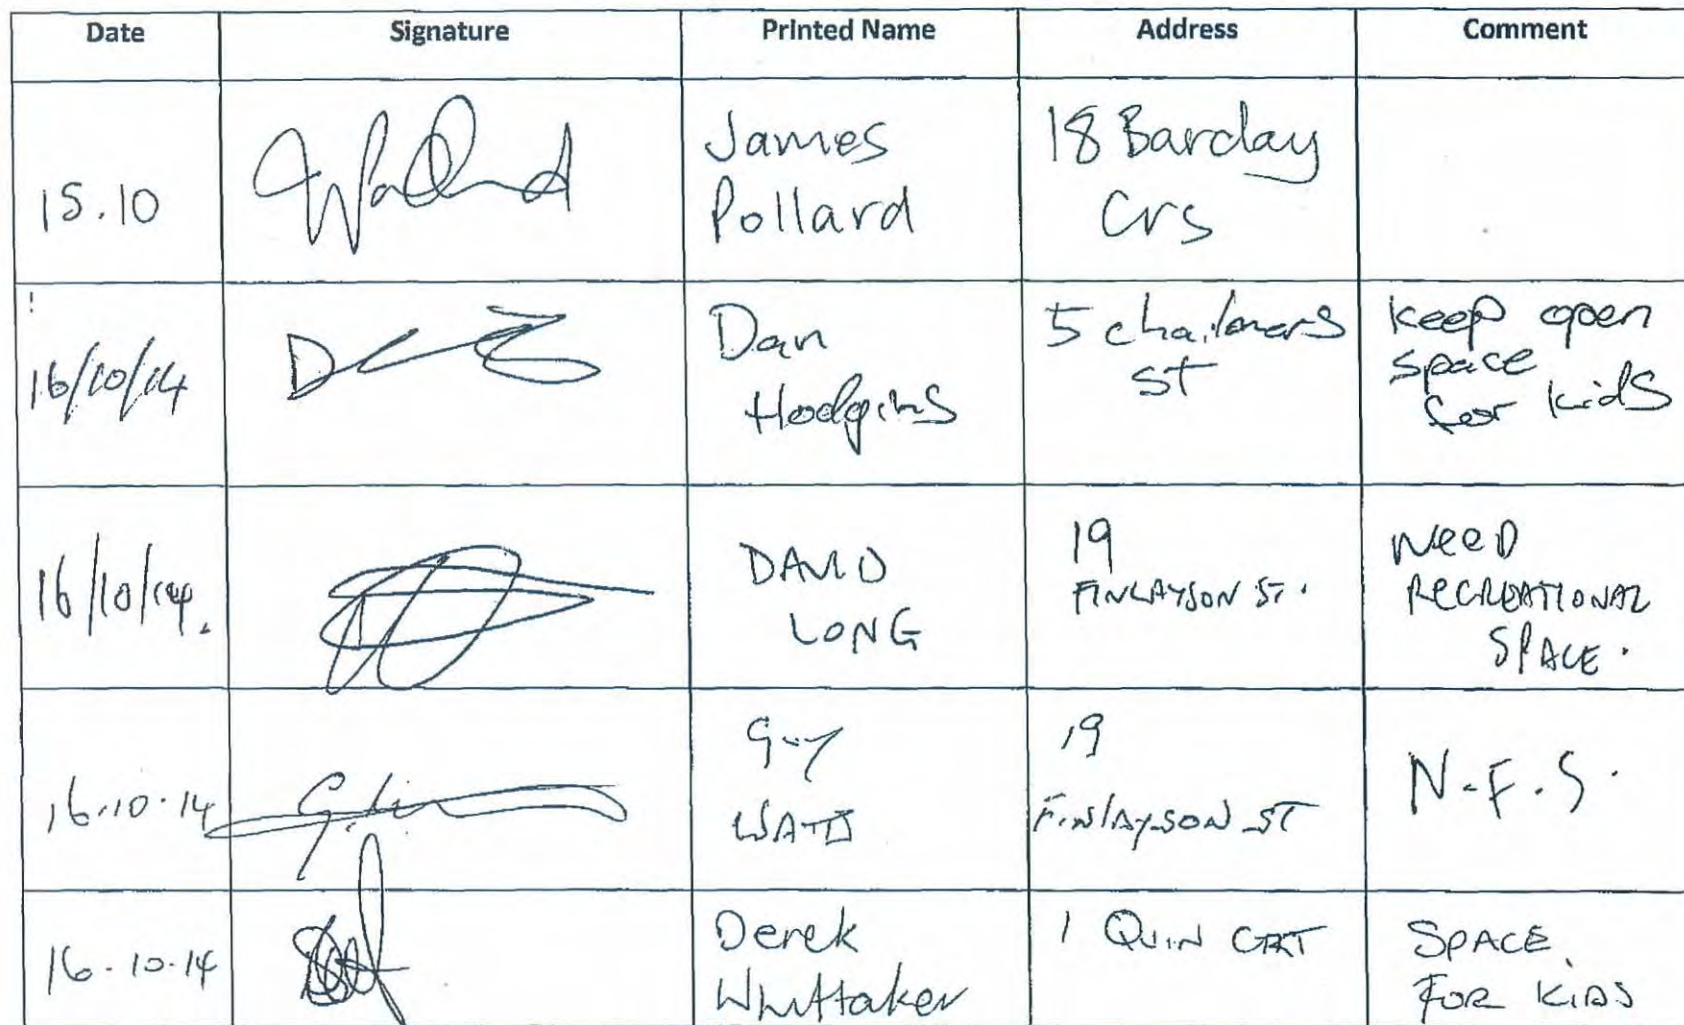 Date Signature Printed Name Address Comment
15.10 James Pollard 18 Barclay Crs
16/10/14 Dan Hodgins 5 chailmers st keep open space for kids
16/10/14. DAVID LONG 19 FINLAYSON ST. NeeD RECREATIONAL SPACE.
16.10.14 Guy WATTS 19 FINlAYSON ST N.F.S.
16.10.14 Derek Whittaker 1 QUIN CRT SPACE FOR KIDS